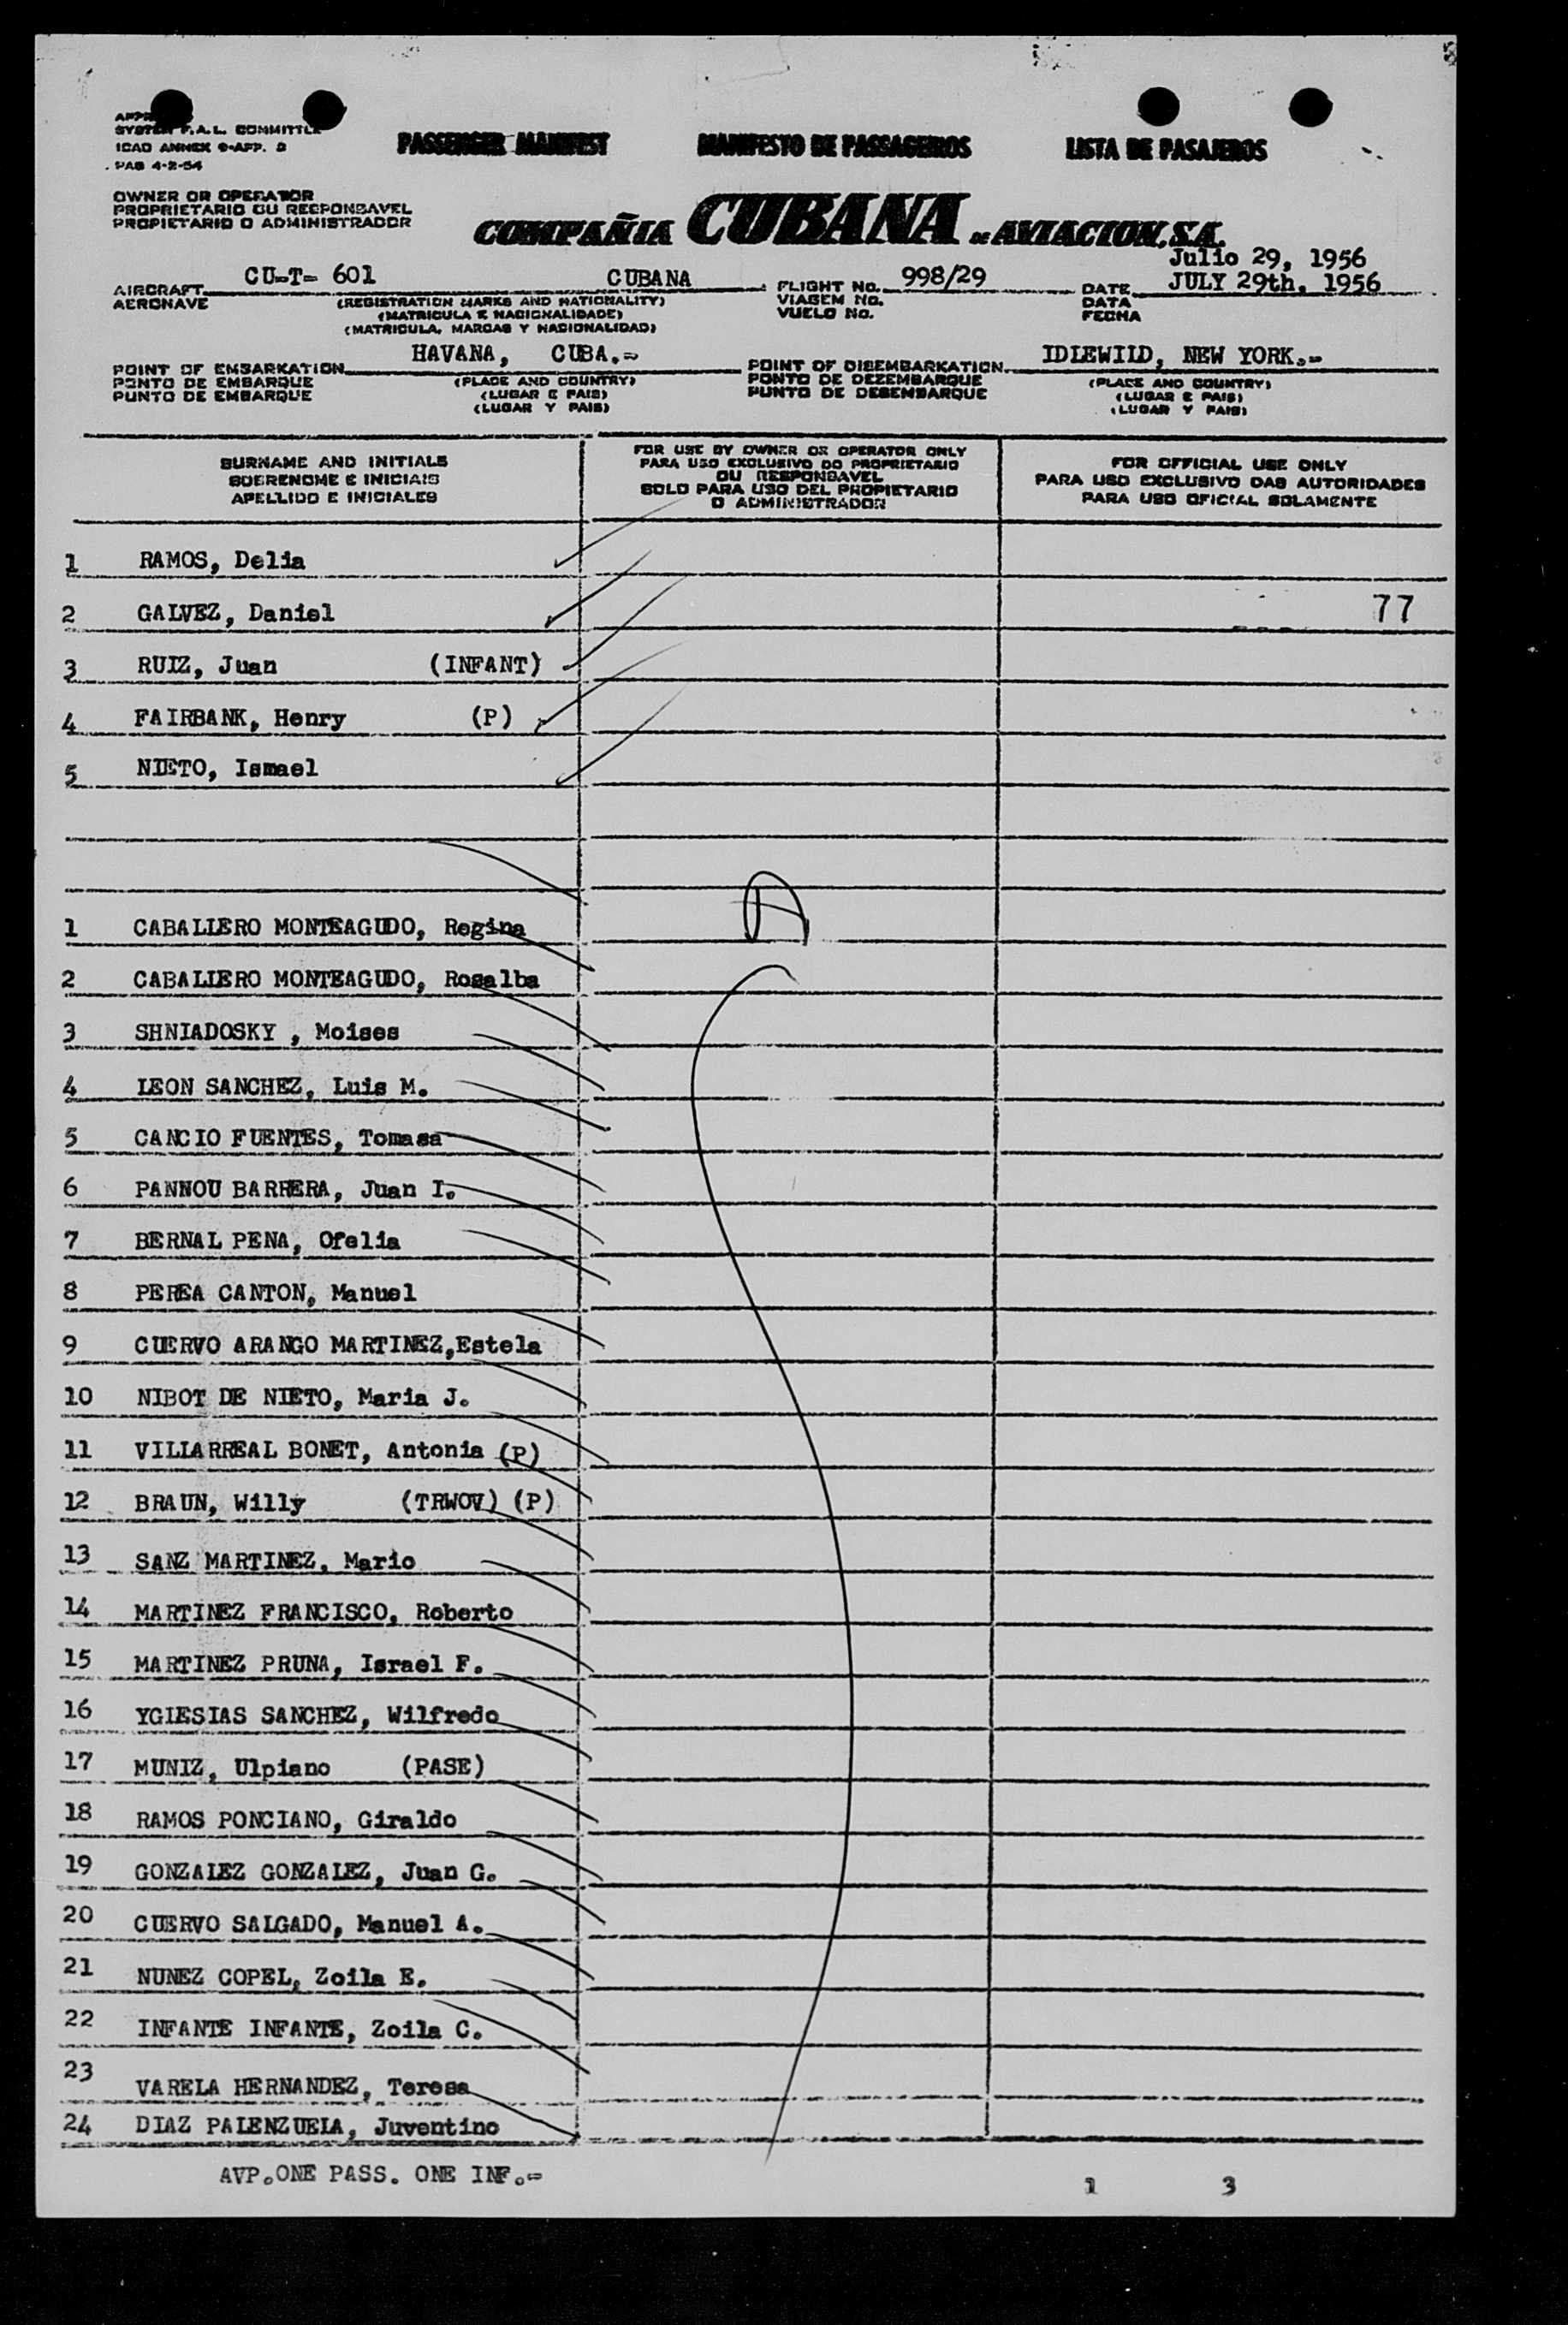 SYSTEM F.A.L. COMMITTEE
ICAO ANNEX 9-APP. 3
PAB 4-2-54
PASSENGER MANIFEST MANIFESTO DE PASSAGEIROS LISTA DE PASAJEROS
OWNER OR OPERATOR
PROPRIETARIO OU RESPONSAVEL
PROPIETARIO O ADMINISTRADOR
COMPAÑIA CUBANA DE AVIACION, S.A.
Julio 29, 1956
AIRCRAFT CU-T- 601 CUBANA FLIGHT No. 998/29 DATE JULY 29th, 1956
AERONAVE (REGISTRATION MARKS AND NATIONALITY) VIAGEM No. DATA
(MATRICULA E NACIONALIDADE) VUELO No. FECHA
(MATRICULA, MARCAS Y NACIONALIDAD)
POINT OF EMBARKATION HAVANA, CUBA.- POINT OF DISEMBARKATION IDLEWILD, NEW YORK.-
PONTO DE EMBARQUE (PLACE AND COUNTRY) PONTO DE DEZEMBARQUE (PLACE AND COUNTRY)
PUNTO DE EMBARQUE (LUGAR E PAIS) PUNTO DE DESEMBARQUE (LUGAR E PAIS)
(LUGAR Y PAIS) (LUGAR Y PAIS)
SURNAME AND INITIALS
SOBRENOME E INICIAIS
APELLIDO E INICIALES
FOR USE BY OWNER OR OPERATOR ONLY
PARA USO EXCLUSIVO DO PROPRIETARIO
OU RESPONSAVEL
SOLO PARA USO DEL PROPIETARIO
O ADMINISTRADOR
FOR OFFICIAL USE ONLY
PARA USO EXCLUSIVO DAS AUTORIDADES
PARA USO OFICIAL SOLAMENTE
1 RAMOS, Delia
2 GALVEZ, Daniel 77
3 RUIZ, Juan (INFANT)
4 FAIRBANK, Henry (P)
5 NIETO, Ismael
1 CABALLERO MONTEAGUDO, Regina
2 CABALLERO MONTEAGUDO, Rosalba
3 SHNIADOSKY , Moises
4 LEON SANCHEZ, Luis M.
5 CANCIO FUENTES, Tomasa
6 PANNOU BARRERA, Juan I.
7 BERNAL PENA, Ofelia
8 PEREA CANTON, Manuel
9 CUERVO ARANGO MARTINEZ,Estela
10 NIBOT DE NIETO, Maria J.
11 VILLARREAL BONET, Antonia (P)
12 BRAUN, Willy (TRWOV) (P)
13 SANZ MARTINEZ, Mario
14 MARTINEZ FRANCISCO, Roberto
15 MARTINEZ PRUNA, Israel F.
16 YGLESIAS SANCHEZ, Wilfredo
17 MUNIZ, Ulpiano (PASE)
18 RAMOS PONCIANO, Giraldo
19 GONZALEZ GONZALEZ, Juan G.
20 CUERVO SALGADO, Manuel A.
21 NUNEZ COPEL, Zoila E.
22 INFANTE INFANTE, Zoila C.
23 VARELA HERNANDEZ, Teresa
24 DIAZ PALENZUELA, Juventino
AVP.ONE PASS. ONE INF.-
1 3